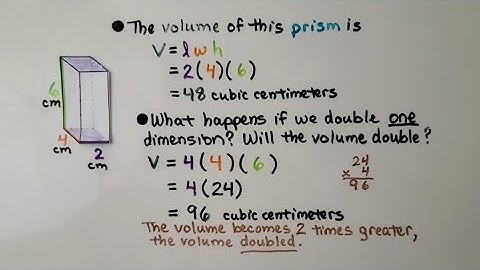 ● The volume of this prism is
V = l w h
= 2(4)(6)
= 48 cubic centimeters
6
cm
4
cm
2
cm
● What happens if we double one
dimension? Will the volume double?
V = 4(4)(6)
= 4(24)
= 96 cubic centimeters
24
x 4
96
The volume becomes 2 times greater,
the volume doubled.